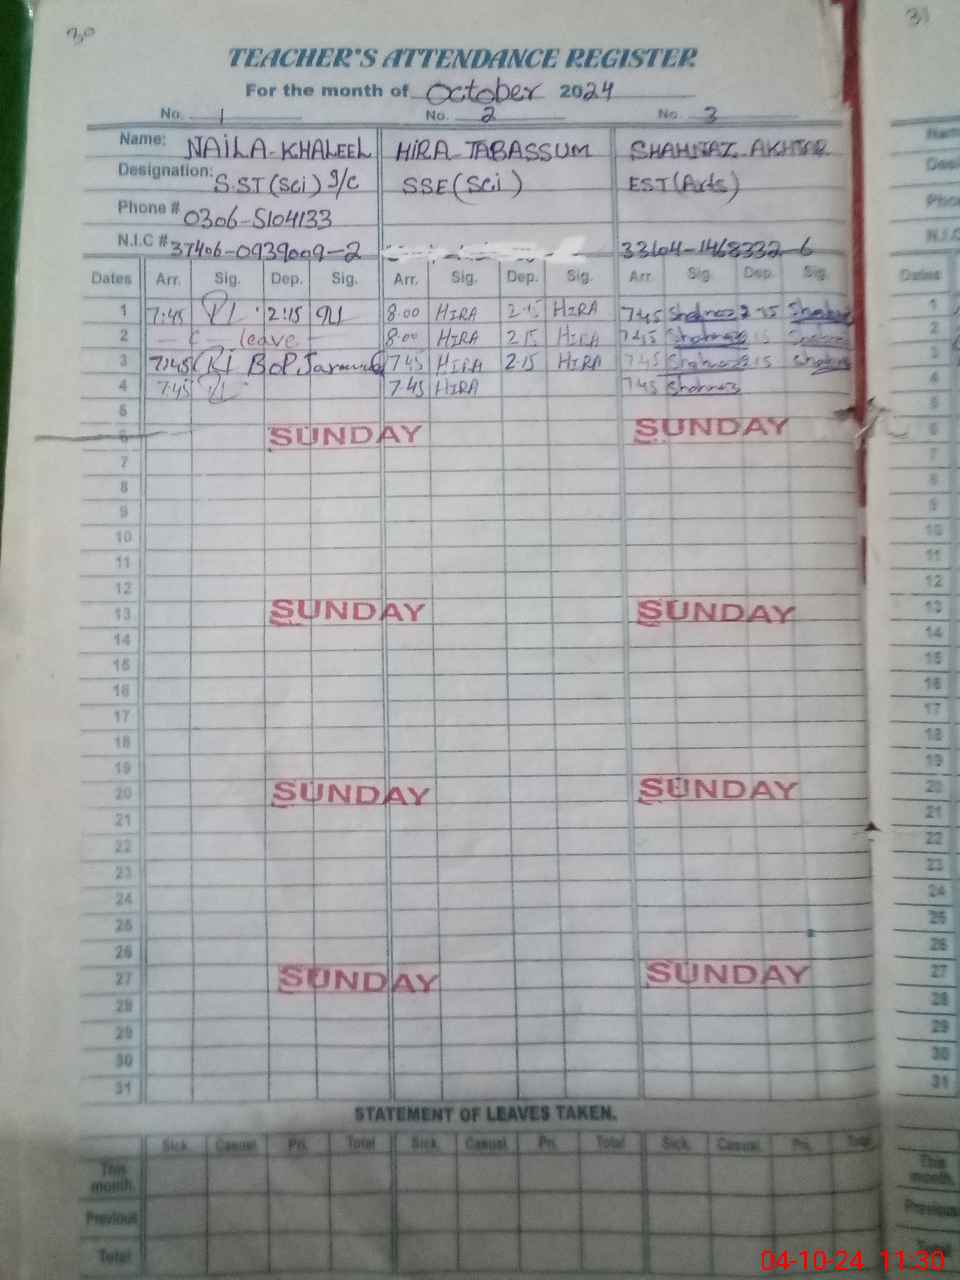 30
31
TEACHER'S ATTENDANCE REGISTER
For the month of October 2024
No. 1 No. 2 No. 3
Name: NAILA-KHALEEL HIRA-TABASSUM SHAHNAZ AKHTAR
Designation: S.ST(Sci) I/C SSE(Sci) EST(Arts)
Phone # 0306-5104133
N.I.C # 37406-0939009-2 33104-1468332-6
Dates Arr. Sig. Dep. Sig. Arr. Sig. Dep. Sig. Arr. Sig. Dep. Sig.
1 7:45 2:15 8:00 HIRA 2:15 HIRA 7:45 Shahnaz 2:15
2 leave 8:00 HIRA 2:15 HIRA 7:45 Shahnaz 2:15
3 7:45 BOP 7:45 HIRA 2:15 HIRA 7:45 Shahnaz 2:15
4 7:45 7:45 HIRA 7:45 Shahnaz
5
6 SUNDAY SUNDAY
7
8
9
10
11
12
13 SUNDAY SUNDAY
14
15
16
17
18
19
20 SUNDAY SUNDAY
21
22
23
24
25
26
27 SUNDAY SUNDAY
28
29
30
31
STATEMENT OF LEAVES TAKEN.
Sick. Casual. Pri. Total Sick. Casual. Pri. Total Sick. Casual. Pri. Total
This month.
Previous
Total
04-10-24 11:30